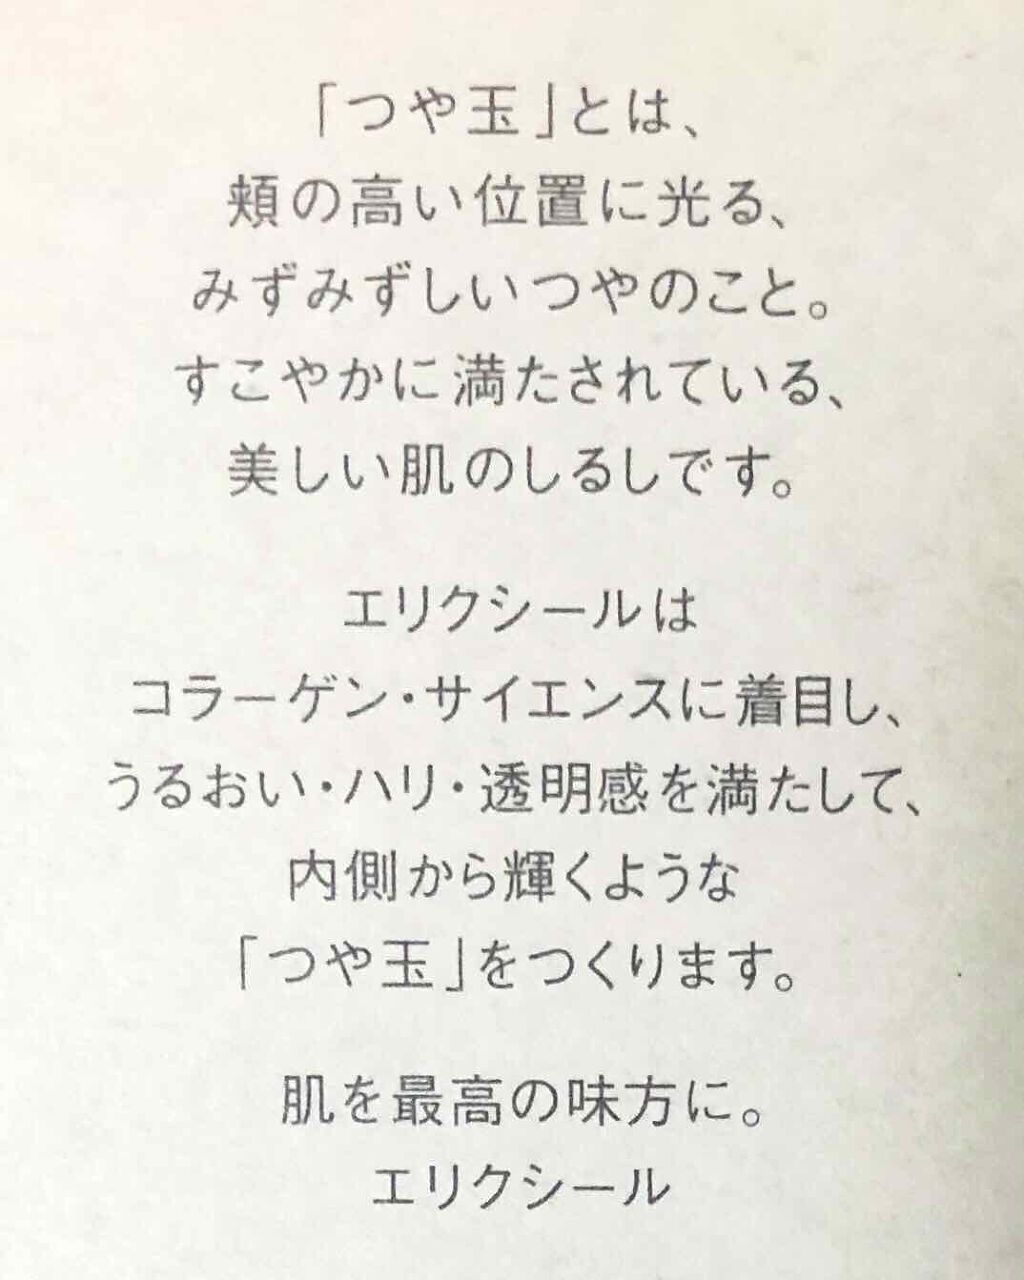 「つや玉」とは、
頬の高い位置に光る、
みずみずしいつやのこと。
すこやかに満たされている、
美しい肌のしるしです。
エリクシールは
コラーゲン・サイエンスに着目し、
うるおい・ハリ・透明感を満たして、
内側から輝くような
「つや玉」をつくります。
肌を最高の味方に。
エリクシール